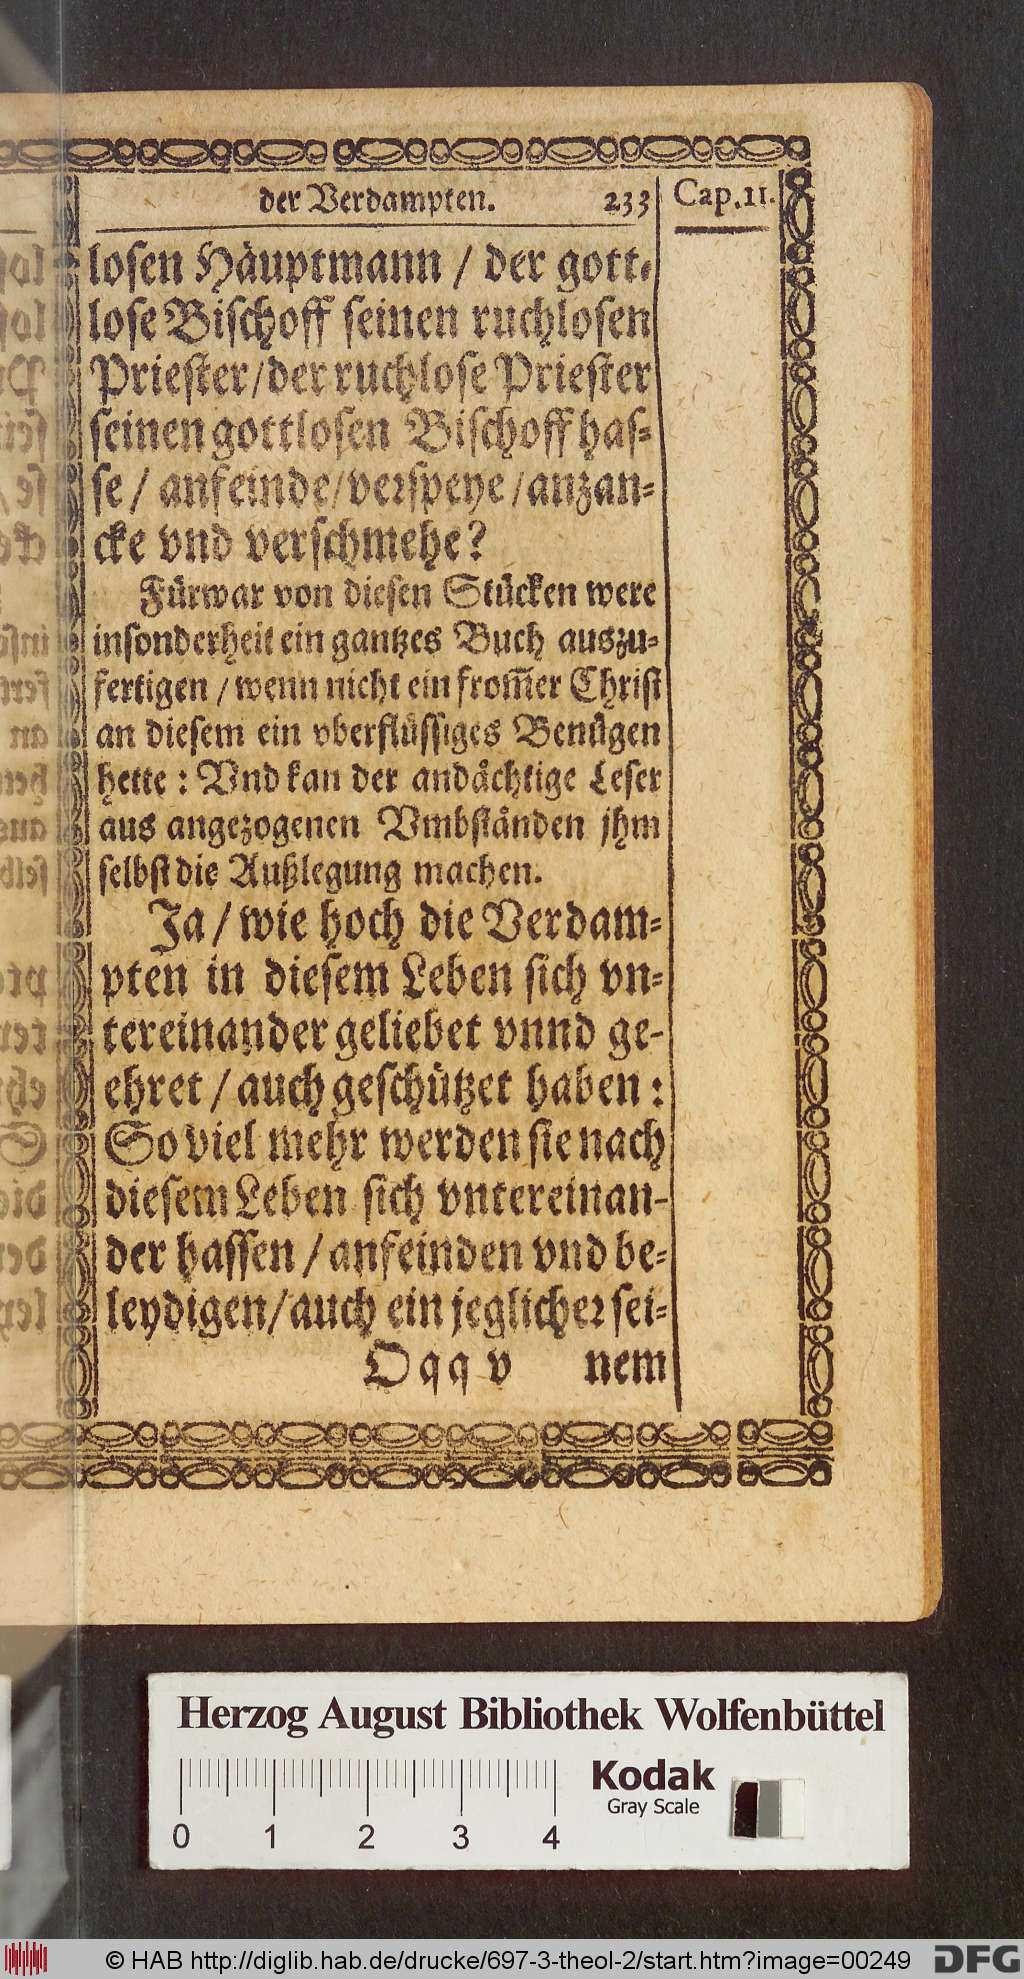 der Verdampten. 233 Cap. 11.
losen Häuptmann / der gott⸗
lose Bischoff seinen ruchlosen
Priester/der ruchlose Priester
seinen gottlosen Bischoff has⸗
se / anfeinde/verspeye/anzan⸗
cke vnd verschmehe?
Fürwar von diesen Stücken were
insonderheit ein gantzes Buch auszu⸗
fertigen / wenn nicht ein from̃er Christ
an diesem ein vberflüssiges Benügen
hette : Vnd kan der andächtige Leser
aus angezogenen Vmbständen jhm
selbst die Außlegung machen.
Ja / wie hoch die Verdam⸗
pten in diesem Leben sich vn⸗
tereinander geliebet vnnd ge⸗
ehret / auch geschützet haben :
So viel mehr werden sie nach
diesem Leben sich vntereinan⸗
der hassen / anfeinden vnd be⸗
leydigen/auch ein jeglicher sei⸗
Oqq v nem
Herzog August Bibliothek Wolfenbüttel
0 1 2 3 4
Kodak
Gray Scale
© HAB http://diglib.hab.de/drucke/697-3-theol-2/start.htm?image=00249
DFG